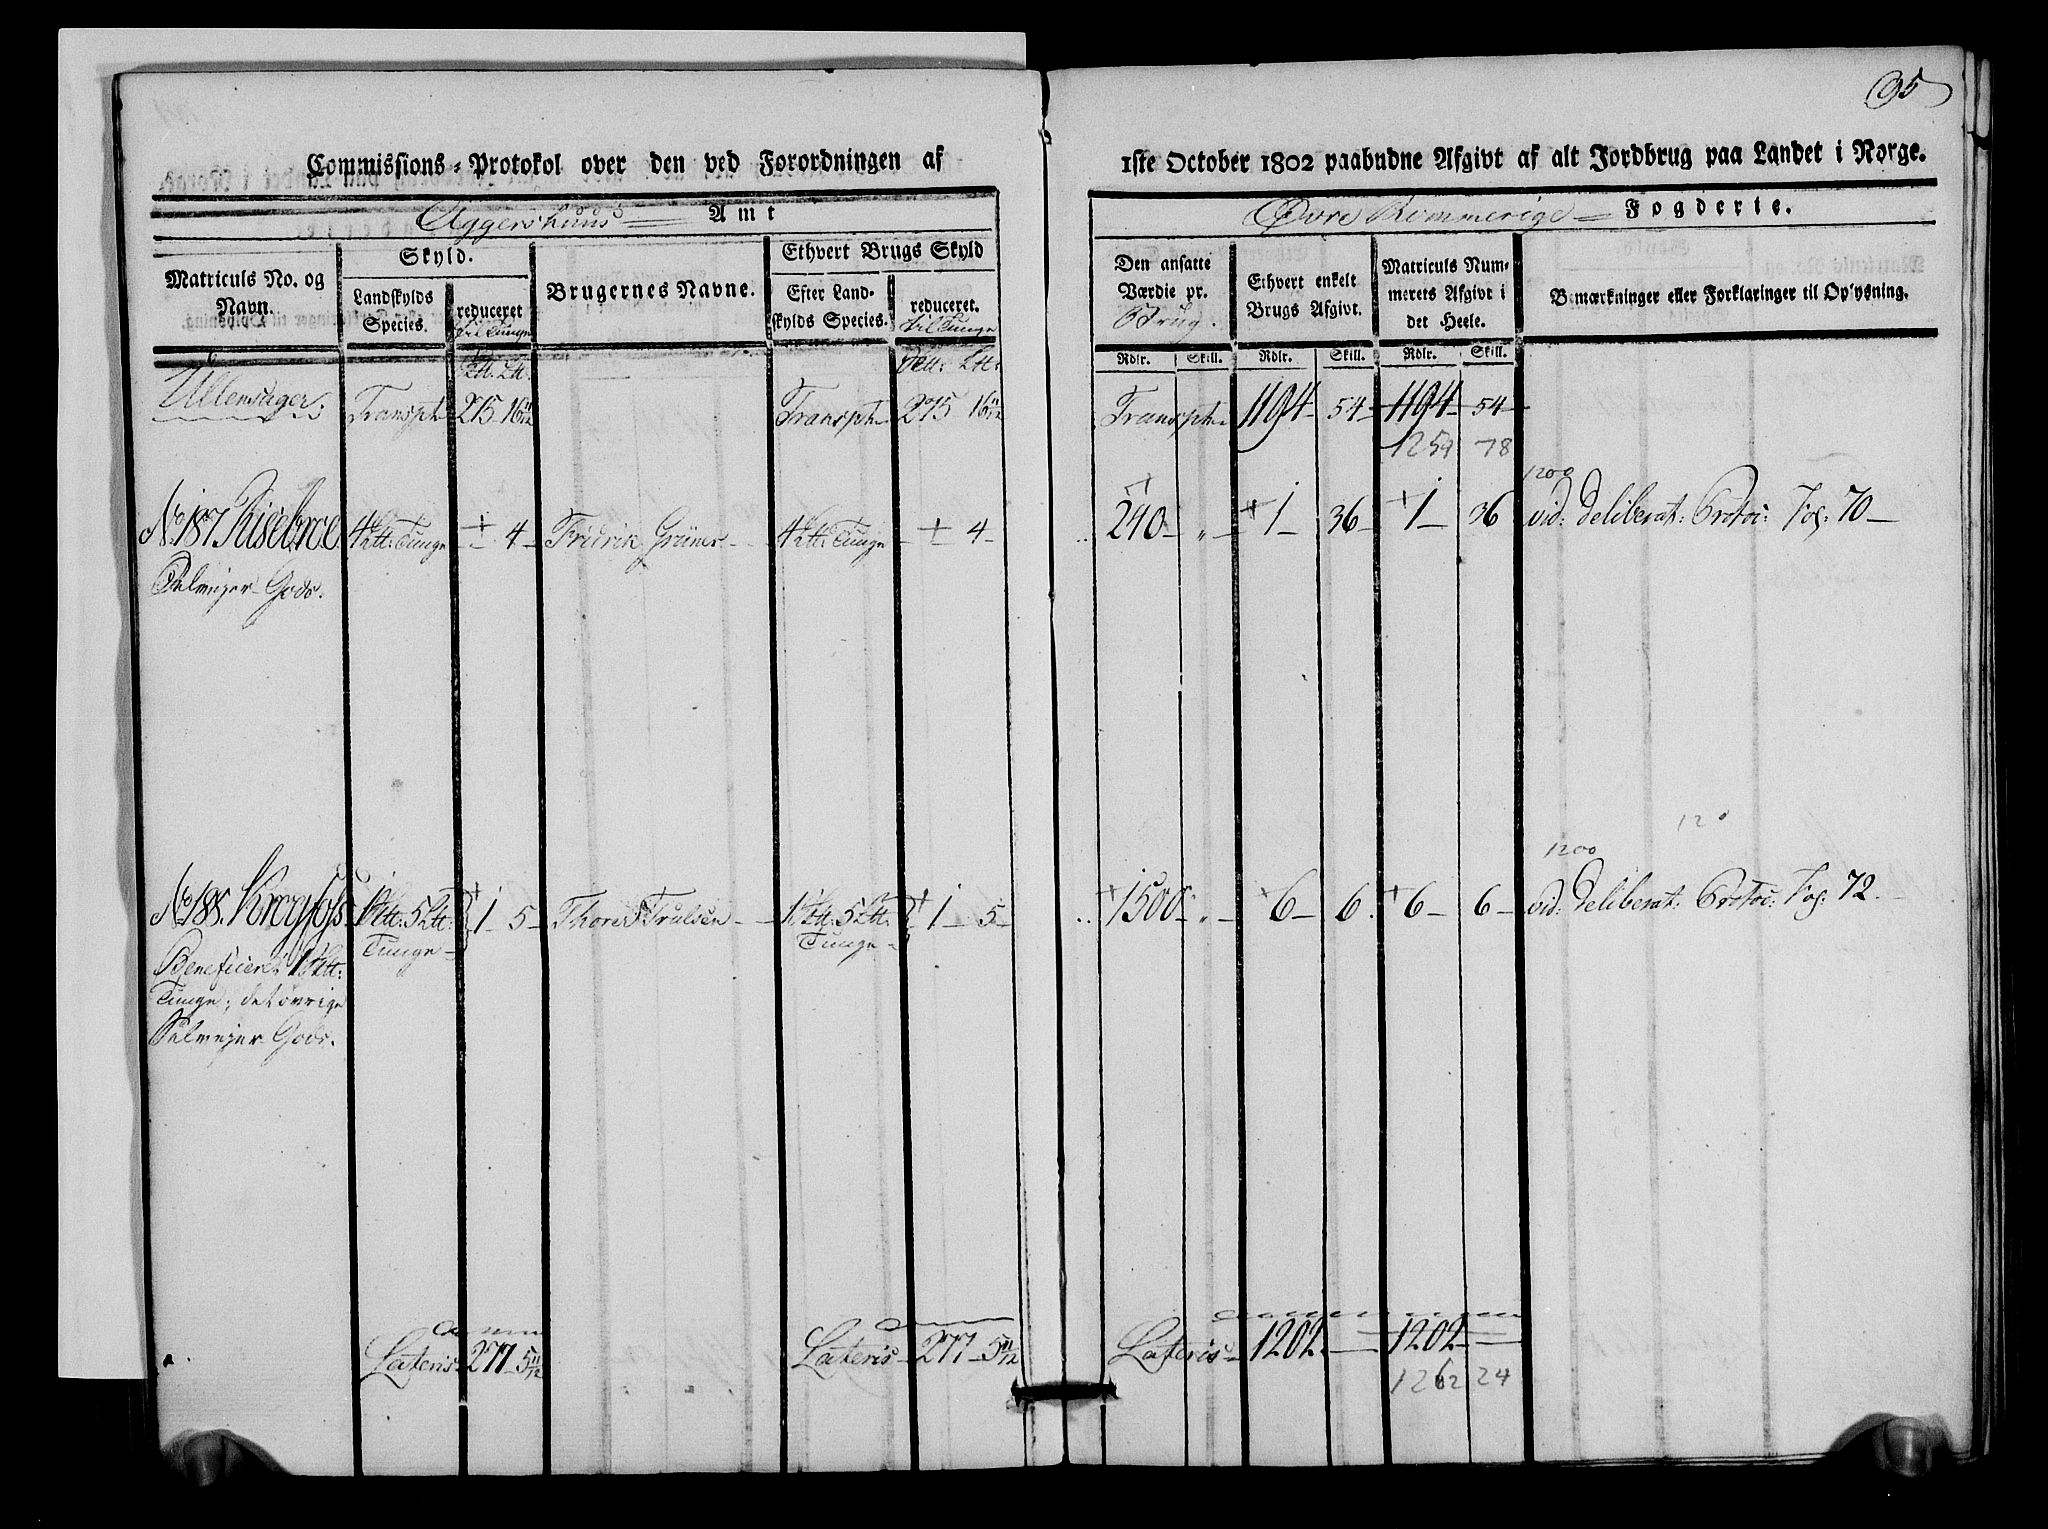 95
Commissions-Protokol over den ved Forordningen af
1ste October 1802 paabudne Afgivt af alt Jordbrug paa Landet i Norge.
Aggershuus Amt
Øvre Rommerige Fogderie.
Matriculs No. og Navn.
Skyld.
Landskylds Species.
reduceret til Tunge
Brugernes Navne.
Ethvert Brugs Skyld
Efter Landskylds Species.
reduceret. til Tunge
Den ansatte Værdie pr. Brug.
Ethvert enkelt Brugs Afgivt.
Matriculs Nummerets Afgivt i det Heele.
Bemærkninger eller Forklaringer til Oplysning.
Rdlr. Skill. Rdlr. Skill. Rdlr. Skill.
Ullensager. Transpt 275 16 11/12 Transpt 275 16 11/12 Transpt 1194 54 1194 54
1259 78
1200
No 187 Risebroe 4 Ltt: Tunge - 4 Fridrik Grüner 4 Ltt: Tunge - 4 240 „ 1 36 1 36 vid: Deliberat: Protoc: Fog: 70
Selveyer Gods.
120
1200
No 188. Krogfoss 1 5 Ltt: 1 5 Thore Trulsen 1 5 Ltt: 1 5 1500 „ 6 6. 6 6 vid: Deliberat: Protoc: Fog: 72.
Tunge Tunge
Beneficeret 1
Tunge; det øvrige
Selveyer Gods.
Lateris 277 5 11/12 Lateris 277 5 11/12 Lateris 1202 1202
1262 24